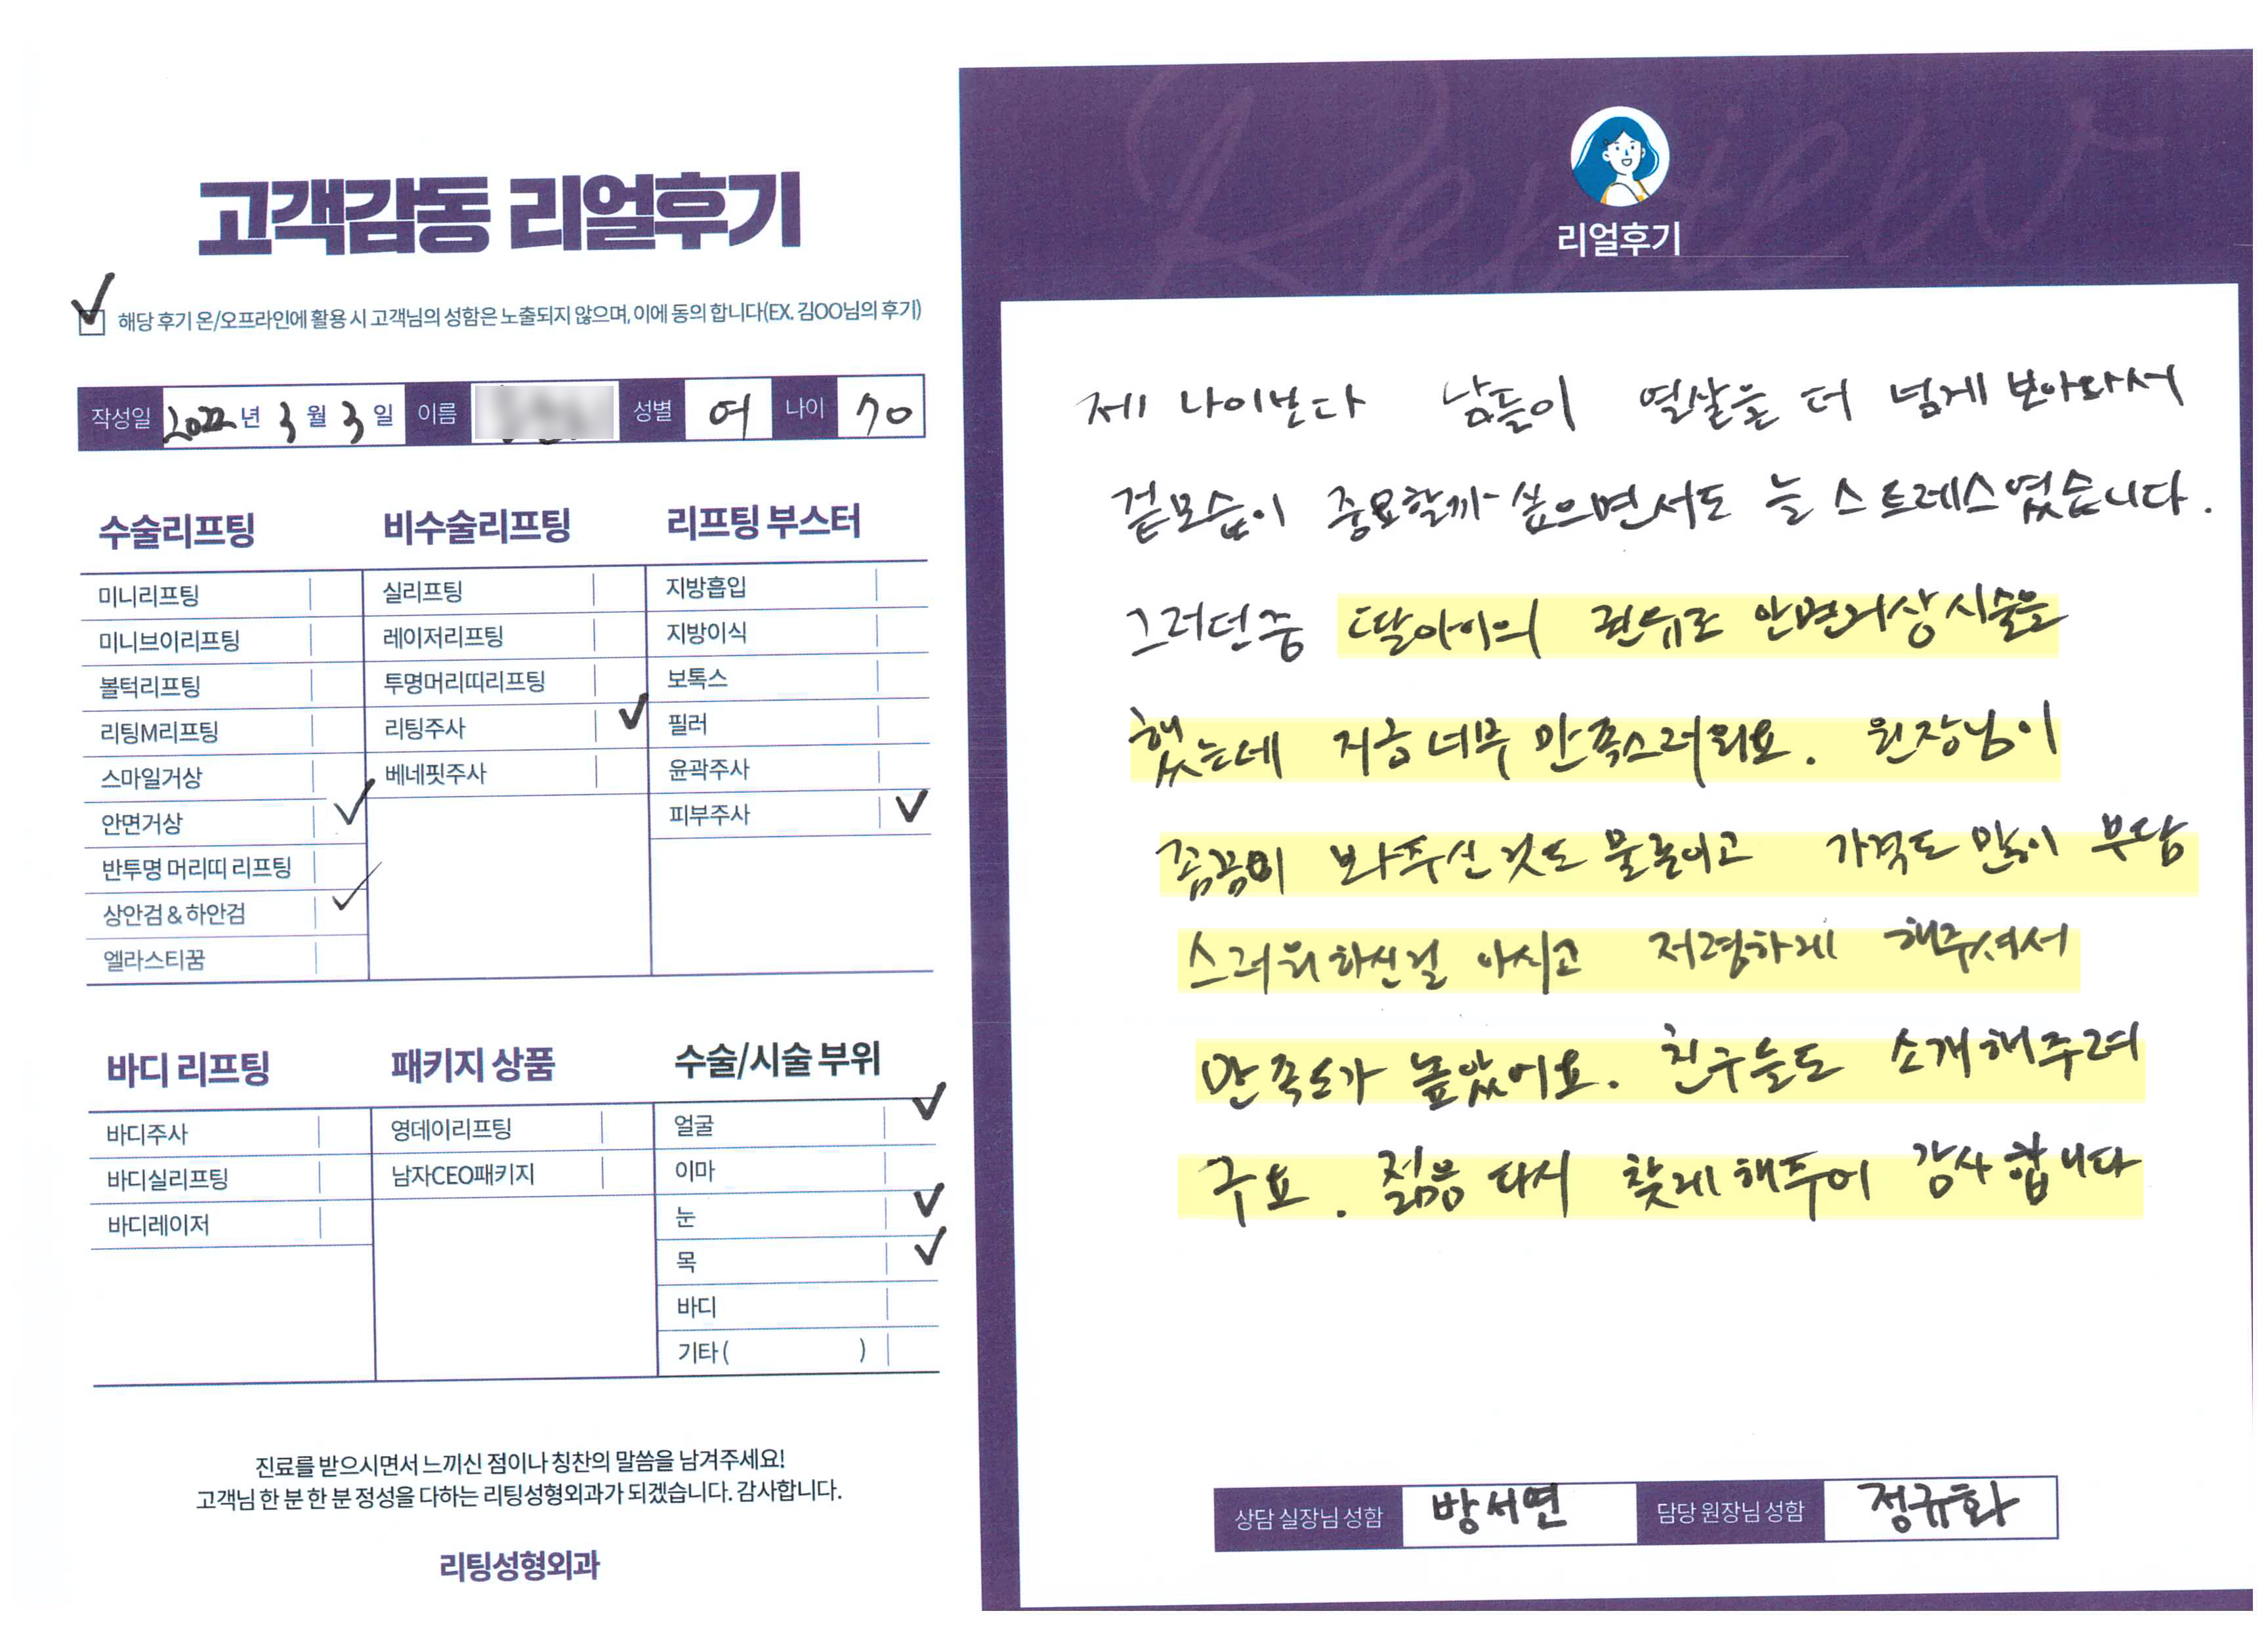 고객감동 리얼후기
해당 후기 온/오프라인에 활용 시 고객님의 성함은 노출되지 않으며, 이에 동의 합니다(EX. 김OO님의 후기)
작성일 2022년 3월 3일 이름 성별 여 나이 70
수술리프팅
미니리프팅
미니브이리프팅
볼턱리프팅
리팅M리프팅
스마일거상
안면거상
반투명 머리띠 리프팅
상안검 & 하안검
엘라스티꿈
비수술리프팅
실리프팅
레이저리프팅
투명머리띠리프팅
리팅주사
베네핏주사
리프팅 부스터
지방흡입
지방이식
보톡스
필러
윤곽주사
피부주사
바디 리프팅
바디주사
바디실리프팅
바디레이저
패키지 상품
영데이리프팅
남자CEO패키지
수술/시술 부위
얼굴
이마
눈
목
바디
기타 ( )
진료를 받으시면서 느끼신 점이나 칭찬의 말씀을 남겨주세요!
고객님 한 분 한 분 정성을 다하는 리팅성형외과가 되겠습니다. 감사합니다.
리팅성형외과
Review
리얼후기
제 나이보다 남들이 열살을 더 넘게 보아와서
겉모습이 중요할까 싶으면서도 늘 스트레스였습니다.
그러던중 딸아이의 권유로 안면거상시술을
했는데 지금 너무 만족스러워요. 원장님이
꼼꼼이 봐주신것도 물론이고 가격도 많이 부담
스러워하신걸 아시고 저렴하게 해주셔서
만족도가 높았어요. 친구들도 소개해주려
구요. 젊음 다시 찾게해주어 감사합니다
상담 실장님 성함 방서연 담당 원장님 성함 정규화